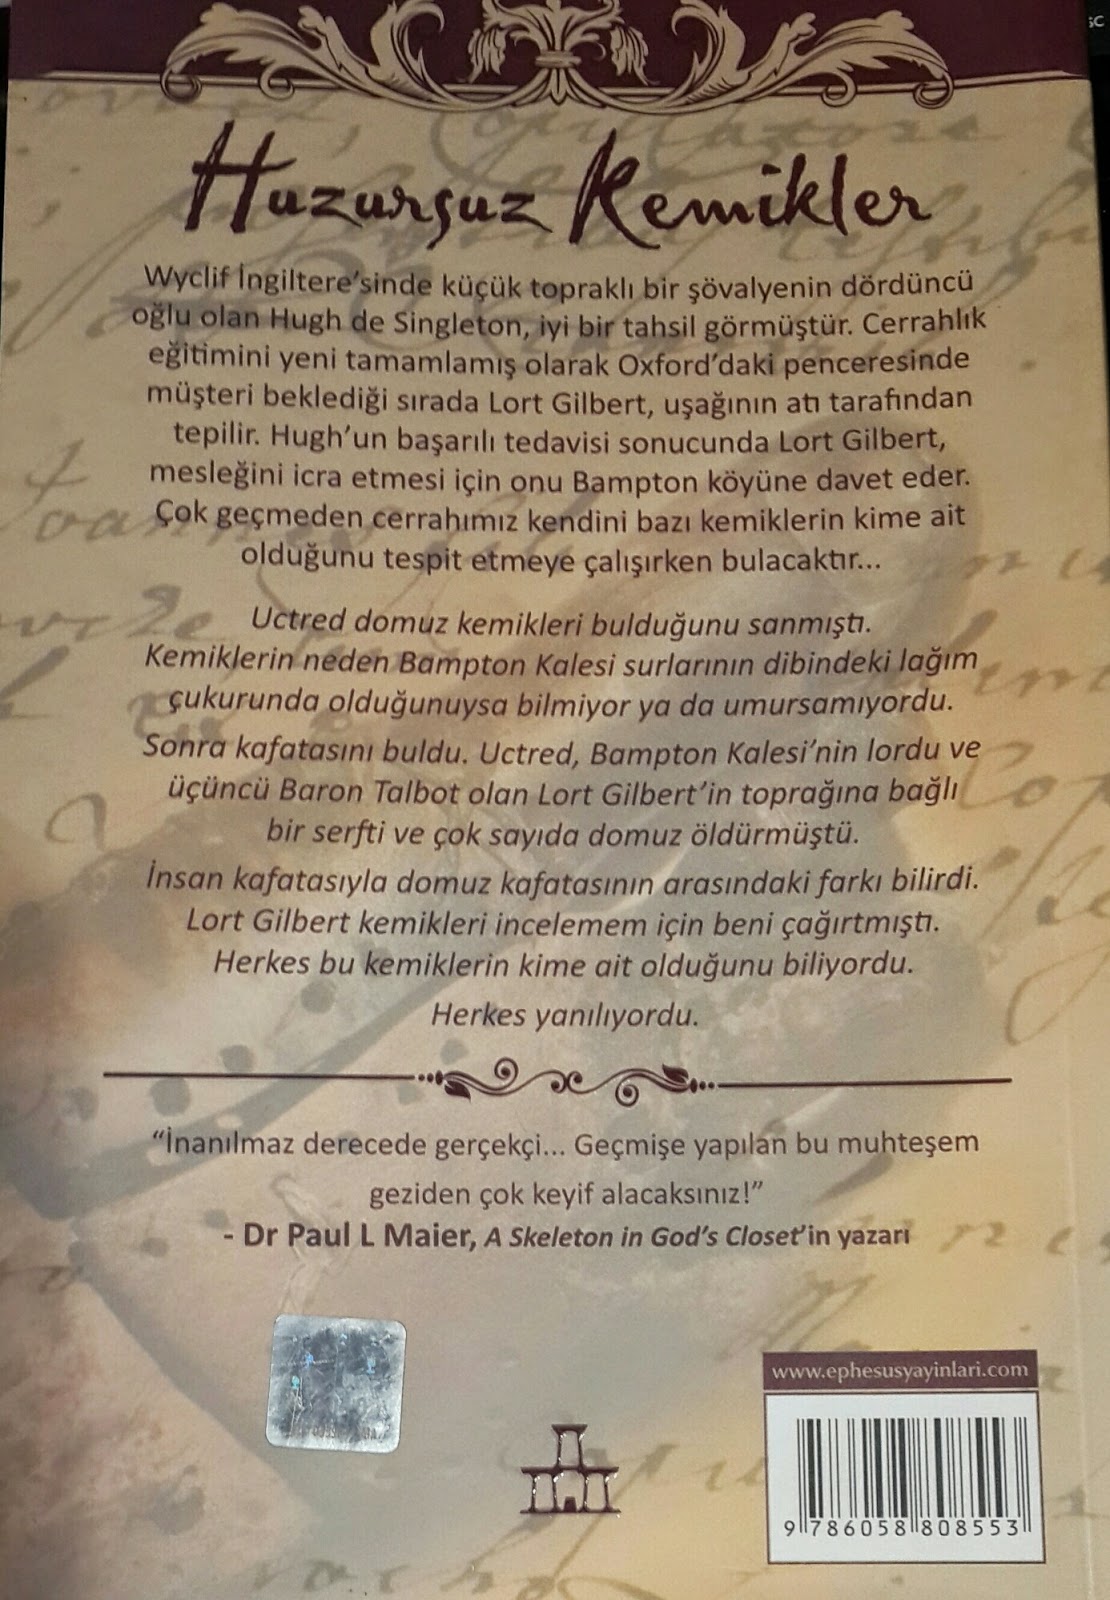 Huzursuz Kemikler
Wyclif İngiltere'sinde küçük topraklı bir şövalyenin dördüncü
oğlu olan Hugh de Singleton, iyi bir tahsil görmüştür. Cerrahlık
eğitimini yeni tamamlamış olarak Oxford'daki penceresinde
müşteri beklediği sırada Lort Gilbert, uşağının atı tarafından
tepilir. Hugh'un başarılı tedavisi sonucunda Lort Gilbert,
mesleğini icra etmesi için onu Bampton köyüne davet eder.
Çok geçmeden cerrahımız kendini bazı kemiklerin kime ait
olduğunu tespit etmeye çalışırken bulacaktır...
Uctred domuz kemikleri bulduğunu sanmıştı.
Kemiklerin neden Bampton Kalesi surlarının dibindeki lağım
çukurunda olduğunuysa bilmiyor ya da umursamıyordu.
Sonra kafatasını buldu. Uctred, Bampton Kalesi'nin lordu ve
üçüncü Baron Talbot olan Lort Gilbert'in toprağına bağlı
bir serfti ve çok sayıda domuz öldürmüştü.
İnsan kafatasıyla domuz kafatasının arasındaki farkı bilirdi.
Lort Gilbert kemikleri incelemem için beni çağırtmıştı.
Herkes bu kemiklerin kime ait olduğunu biliyordu.
Herkes yanılıyordu.
"İnanılmaz derecede gerçekçi... Geçmişe yapılan bu muhteşem
geziden çok keyif alacaksınız!"
- Dr Paul L Maier, A Skeleton in God's Closet'in yazarı
www.ephesusyayinlari.com
9 786058 808553